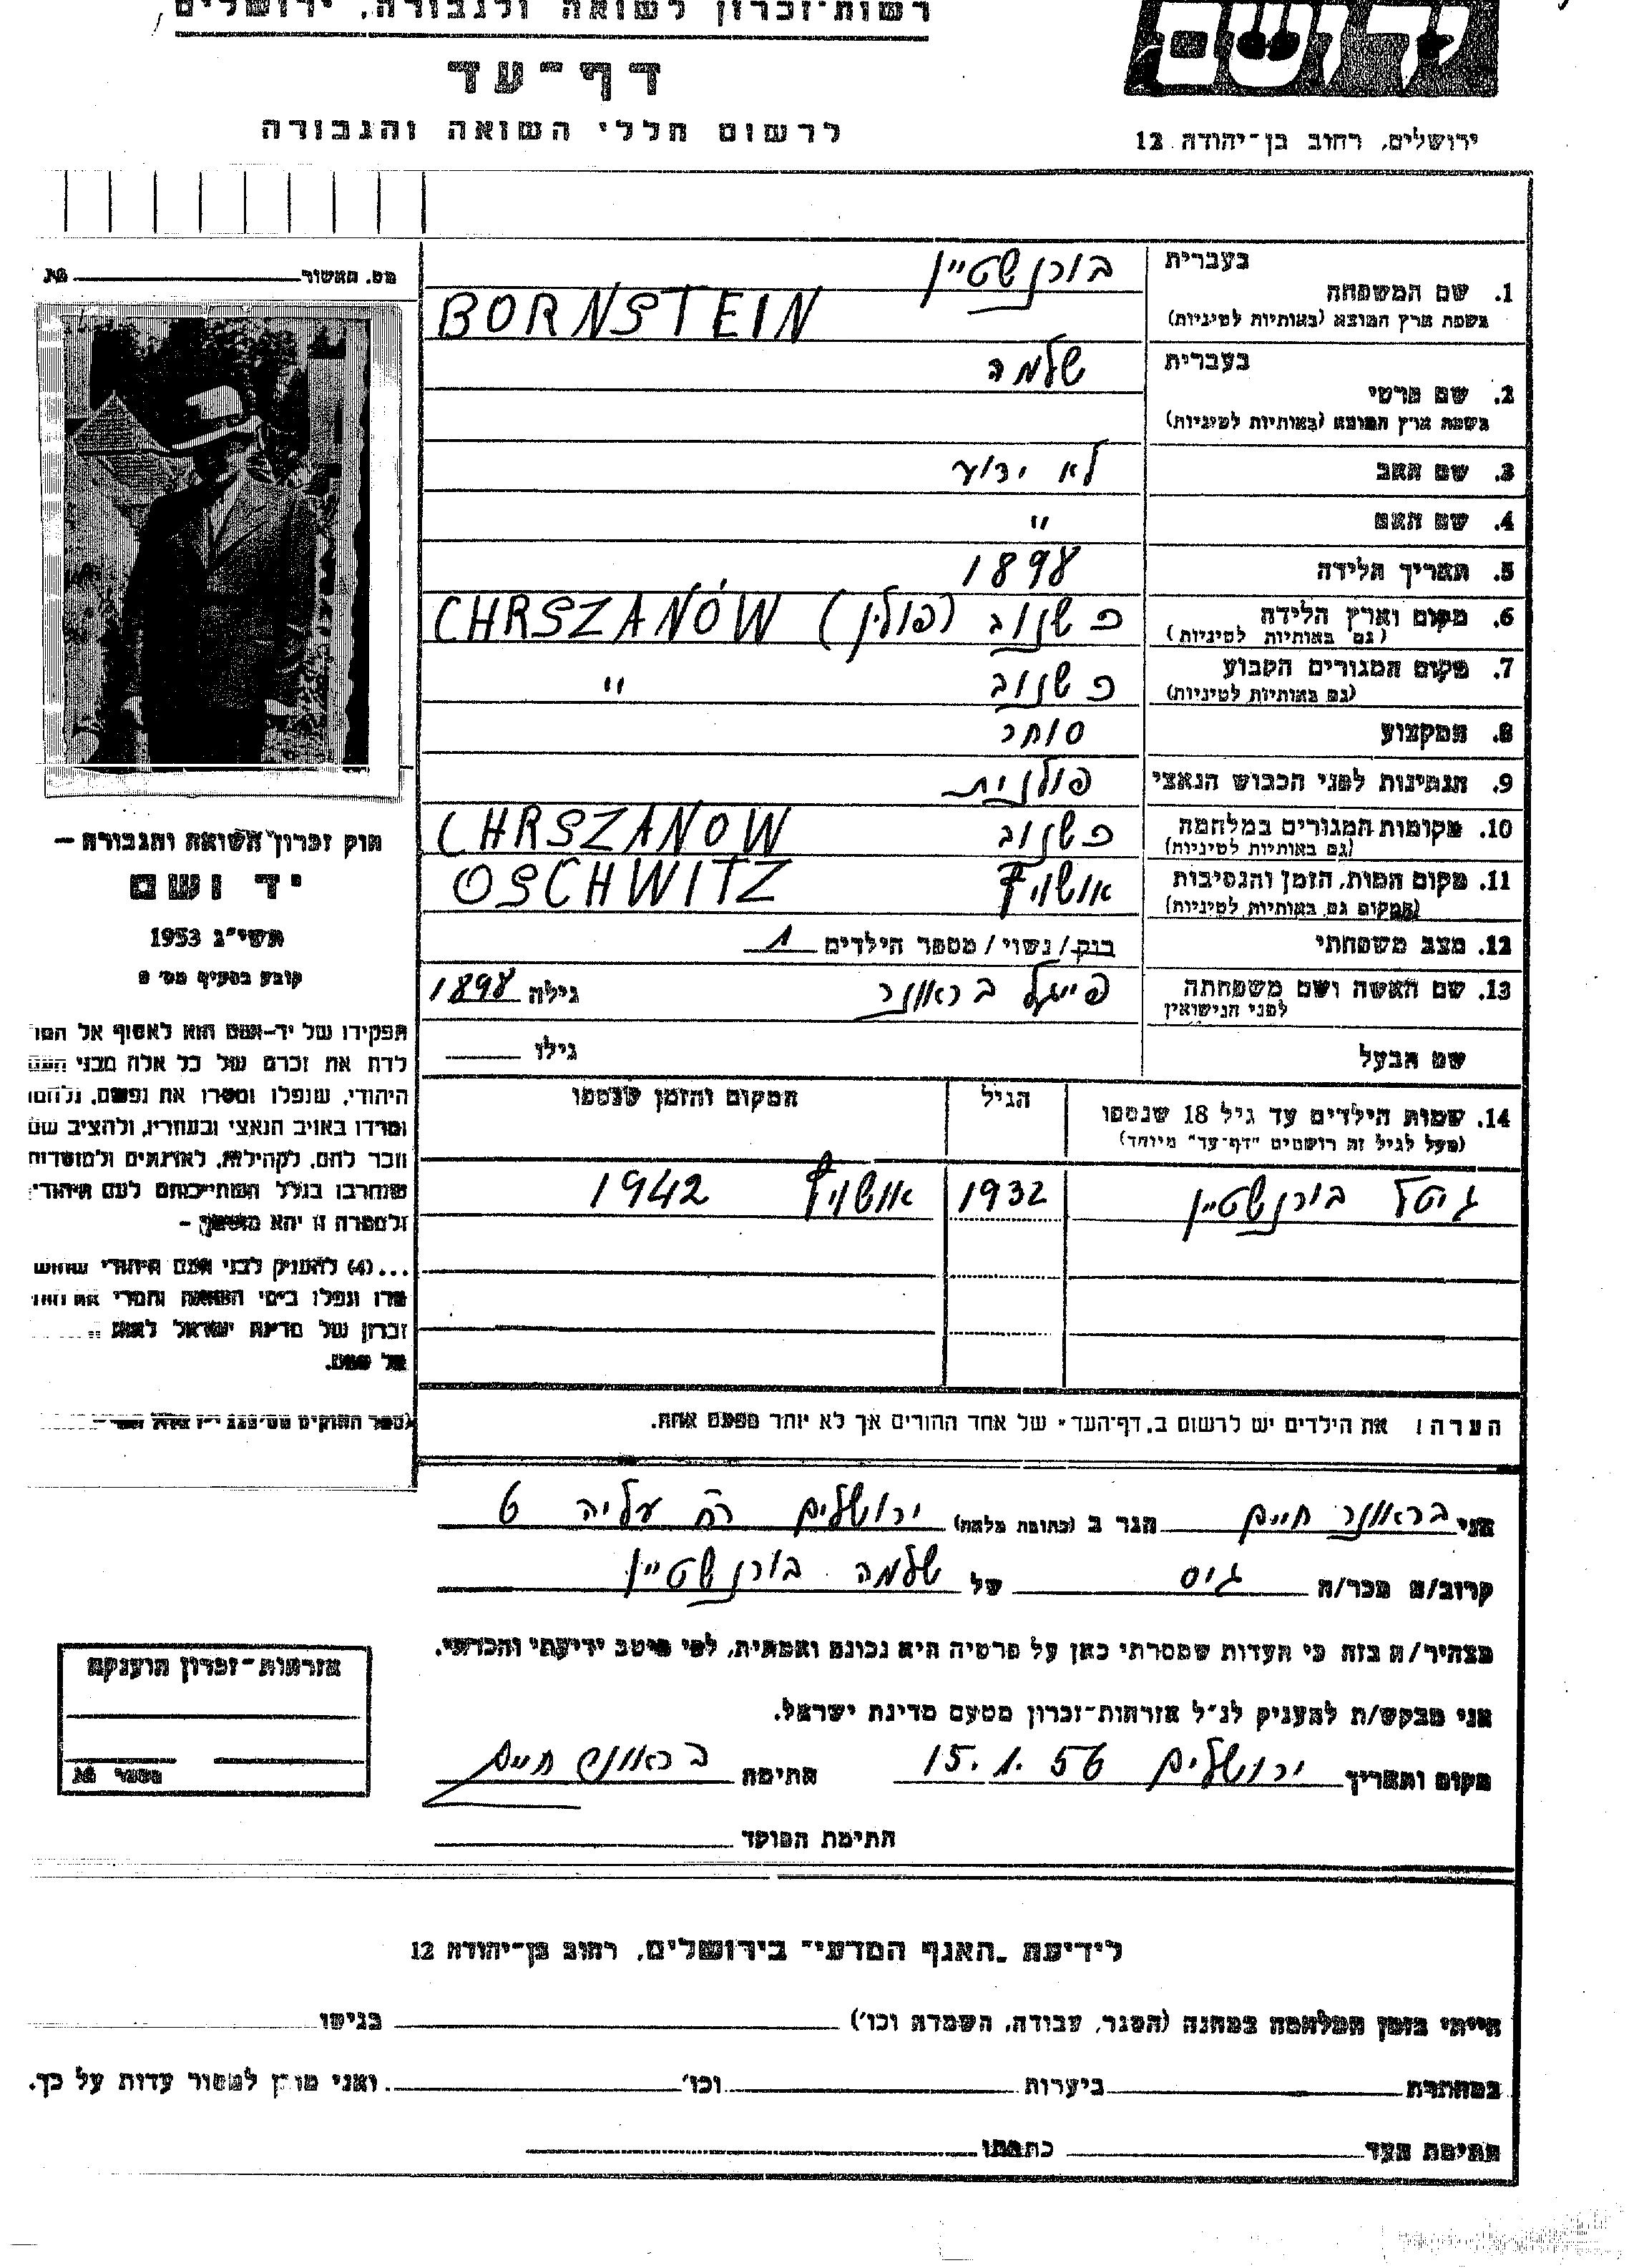 רשות־זכרון לשואה ולגבורה, ירושלים
יד ושם
דף־עד
לרשום חללי השואה והגבורה
ירושלים, רחוב בן־יהודה 12
מס. האשור № 
1. שם המשפחה
בעברית בורנשטיין
בשפת ארץ המוצא (באותיות לטיניות) BORNSTEIN
2. שם פרטי
בעברית שלמה
בשפת ארץ המוצא (באותיות לטיניות)
3. שם האב לא ידוע
4. שם האם "
5. תאריך הלידה 1898
6. מקום וארץ הלידה כשנוב (פולין) CHRSZANÓW
(גם באותיות לטיניות)
7. מקום המגורים הקבוע כשנוב "
(גם באותיות לטיניות)
8. המקצוע סוחר
9. הנתינות לפני הכבוש הנאצי פולנית
10. מקומות המגורים במלחמה כשנוב CHRSZANOW
(גם באותיות לטיניות)
11. מקום המות, הזמן והנסיבות אושויץ OSCHWITZ
(המקום גם באותיות לטיניות)
12. מצב משפחתי רווק / נשוי / מספר הילדים 1
13. שם האשה ושם משפחתה פייגל בראונר גילה 1898
לפני הנישואין
שם הבעל גילו
14. שמות הילדים עד גיל 18 שנספו הגיל המקום והזמן שנספו
(מעל לגיל זה רושמים "דף־עד" מיוחד)
גיטל בורנשטיין 1932 אושויץ 1942
הערה: את הילדים יש לרשום ב"דף־העד" של אחד ההורים אך לא יותר מפעם אחת.
חוק זכרון השואה והגבורה –
יד ושם
תשי"ג 1953
קובע בסעיף מס' 2
תפקידו של יד־ושם הוא לאסוף אל המו
לדת את זכרם של כל אלה מבני העם
היהודי, שנפלו ומסרו את נפשם, נלחמו
ומרדו באויב הנאצי ובעוזריו, ולהציב שם
וזכר להם, לקהילות, לארגונים ולמוסדות
שנחרבו בגלל השתייכותם לעם היהודי
ולמטרה זו יהא מוסמך –
...(4) להעניק לבני העם היהודי שהוש
מדו ונפלו בימי השואה והמרי אזרחות
זכרון של מדינת ישראל לאות
אל עמם.
אני בראונר חיים הגר ב (כתובת מלאה) ירושלים רח עליה 6
קרוב/ה מכר/ה גיס של שלמה בורנשטיין
מצהיר/ה בזה כי העדות שמסרתי כאן על פרטיה היא נכונה ואמתית, לפי מיטב ידיעתי והכרתי.
אני מבקש/ת להעניק לנ"ל אזרחות־זכרון מטעם מדינת ישראל.
מקום ותאריך ירושלים 15.1.56 חתימה בראונר חיים
חתימת הפוקד
אזרחות־זכרון הוענקה
מספר №
לידיעת "האגף המדעי" בירושלים, רחוב בן־יהודה 12
הייתי בזמן המלחמה במחנה (הסגר, עבודה, השמדה וכו') בגיטו
במחתרת ביערות וכו' ואני מוכן למסור עדות על כך.
חתימת העד כתבתו